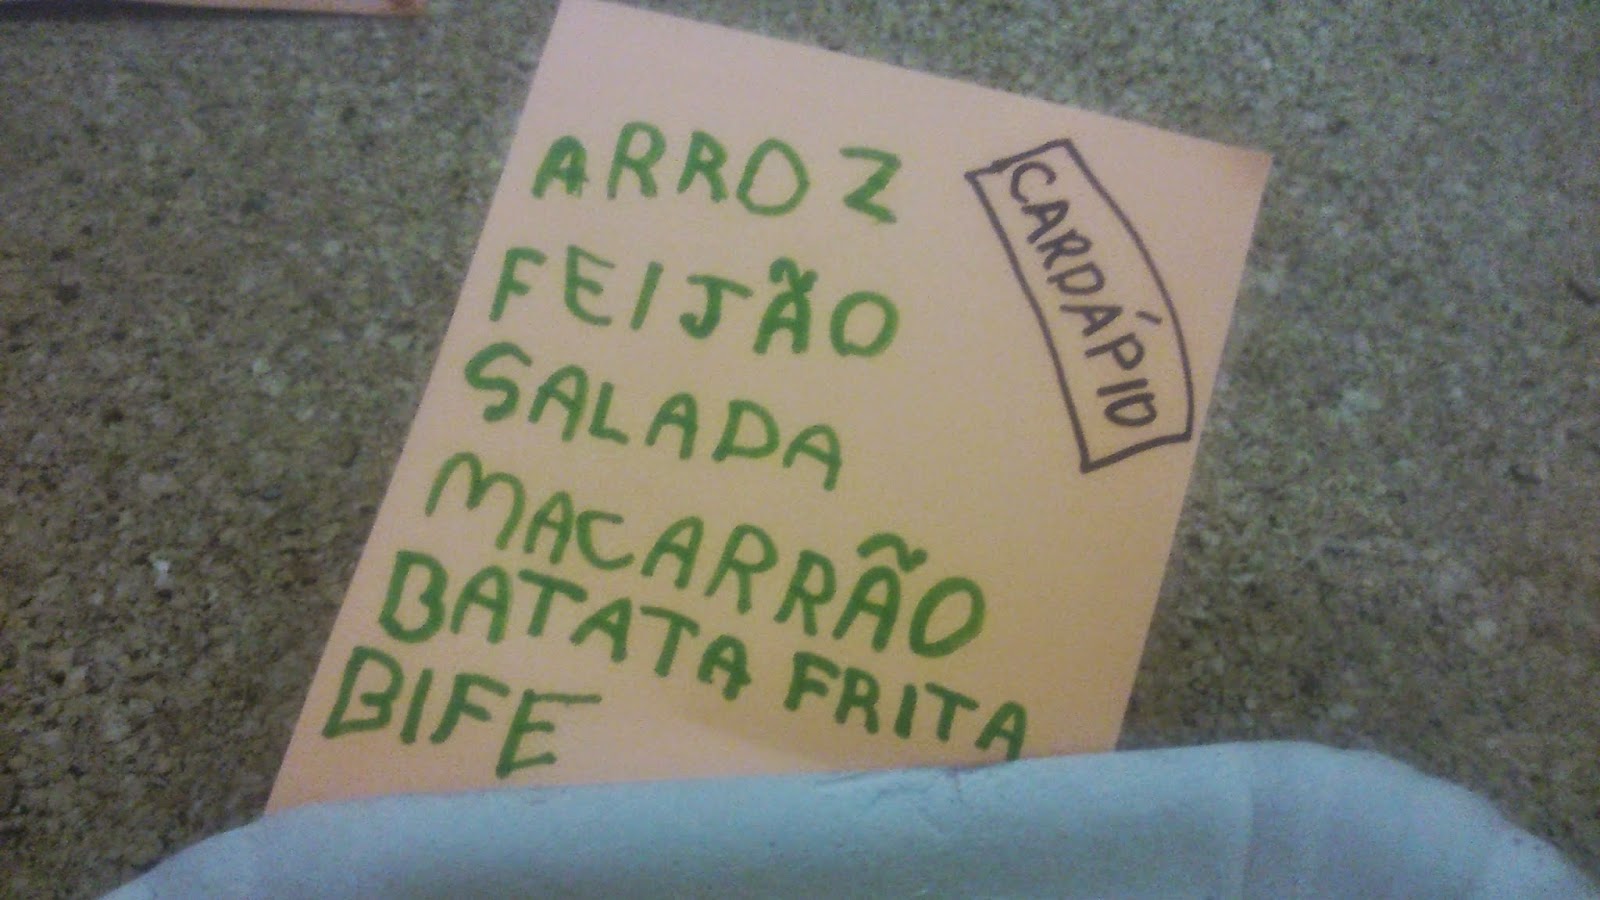 ARROZ
FEIJÃO
SALADA
MACARRÃO
BATATA FRITA
BIFE
CARDÁPIO